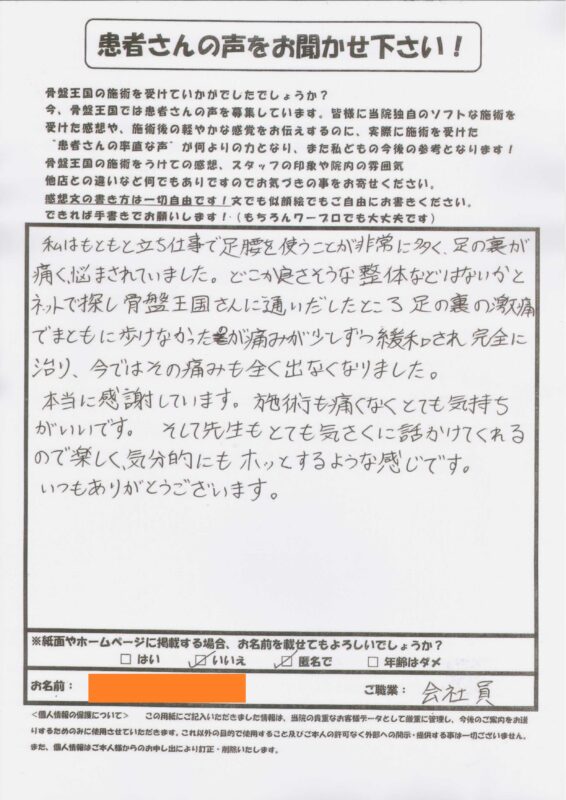 患者さんの声をお聞かせ下さい！
骨盤王国の施術を受けていかがでしたでしょうか？
今、骨盤王国では患者さんの声を募集しています。皆様に当院独自のソフトな施術を
受けた感想や、施術後の軽やかな感覚をお伝えするのに、実際に施術を受けた
"患者さんの率直な声"が何よりの力となり、また私どもの今後の参考となります！
骨盤王国の施術をうけての感想、スタッフの印象や院内の雰囲気
他店との違いなど何でもありですのでお気づきの事をお寄せください。
感想文の書き方は一切自由です！文でも似顔絵でもご自由にお書きください。
できれば手書きでお願いします！（もちろんワープロでも大丈夫です）
私はもともと立ち仕事で足腰を使うことが非常に多く、足の裏が
痛く、悩まされていました。どこか良さそうな整体などはないかと
ネットで探し骨盤王国さんに通いだしたところ足の裏の激痛
でまともに歩けなかったが痛みが少しずつ緩和され完全に
治り、今ではその痛みも全く出なくなりました。
本当に感謝しています。施術も痛くなくとても気持ち
がいいです。そして先生もとても気さくに話かけてくれる
ので楽しく、気分的にもホッとするような感じです。
いつもありがとうございます。
※紙面やホームページに掲載する場合、お名前を載せてもよろしいでしょうか？
□ はい ☑ いいえ ☑ 匿名で □ 年齢はダメ
お名前： ご職業： 会社員
＜個人情報の保護について＞ この用紙にご記入いただきました情報は、当院の貴重なお客様データとして厳重に管理し、今後のご案内をお送
りするためのみに使用させていただきます。これ以外の目的で使用すること及びご本人の許可なく外部への開示・提供する事は一切ございません。
また、個人情報はご本人様からのお申し出により訂正・削除いたします。